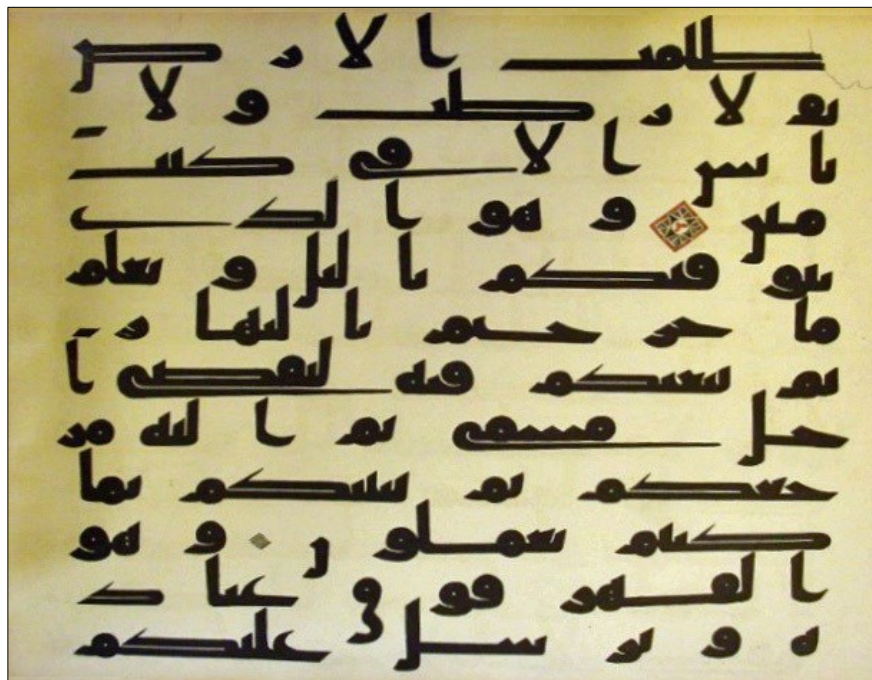 ظلمت الارض
و لا رطب و لا
يابس الا في كتب
مبين و هو الذي
يتوفيكم باليل و يعلم
ما جرحتم بالنهار
ثم يبعثكم فيه ليقضى ا
جل مسمى ثم اليه مر
جعكم ثم ينبيكم بما
كنتم تعملون و هو
القهر فوق عباد
ه و يرسل عليكم